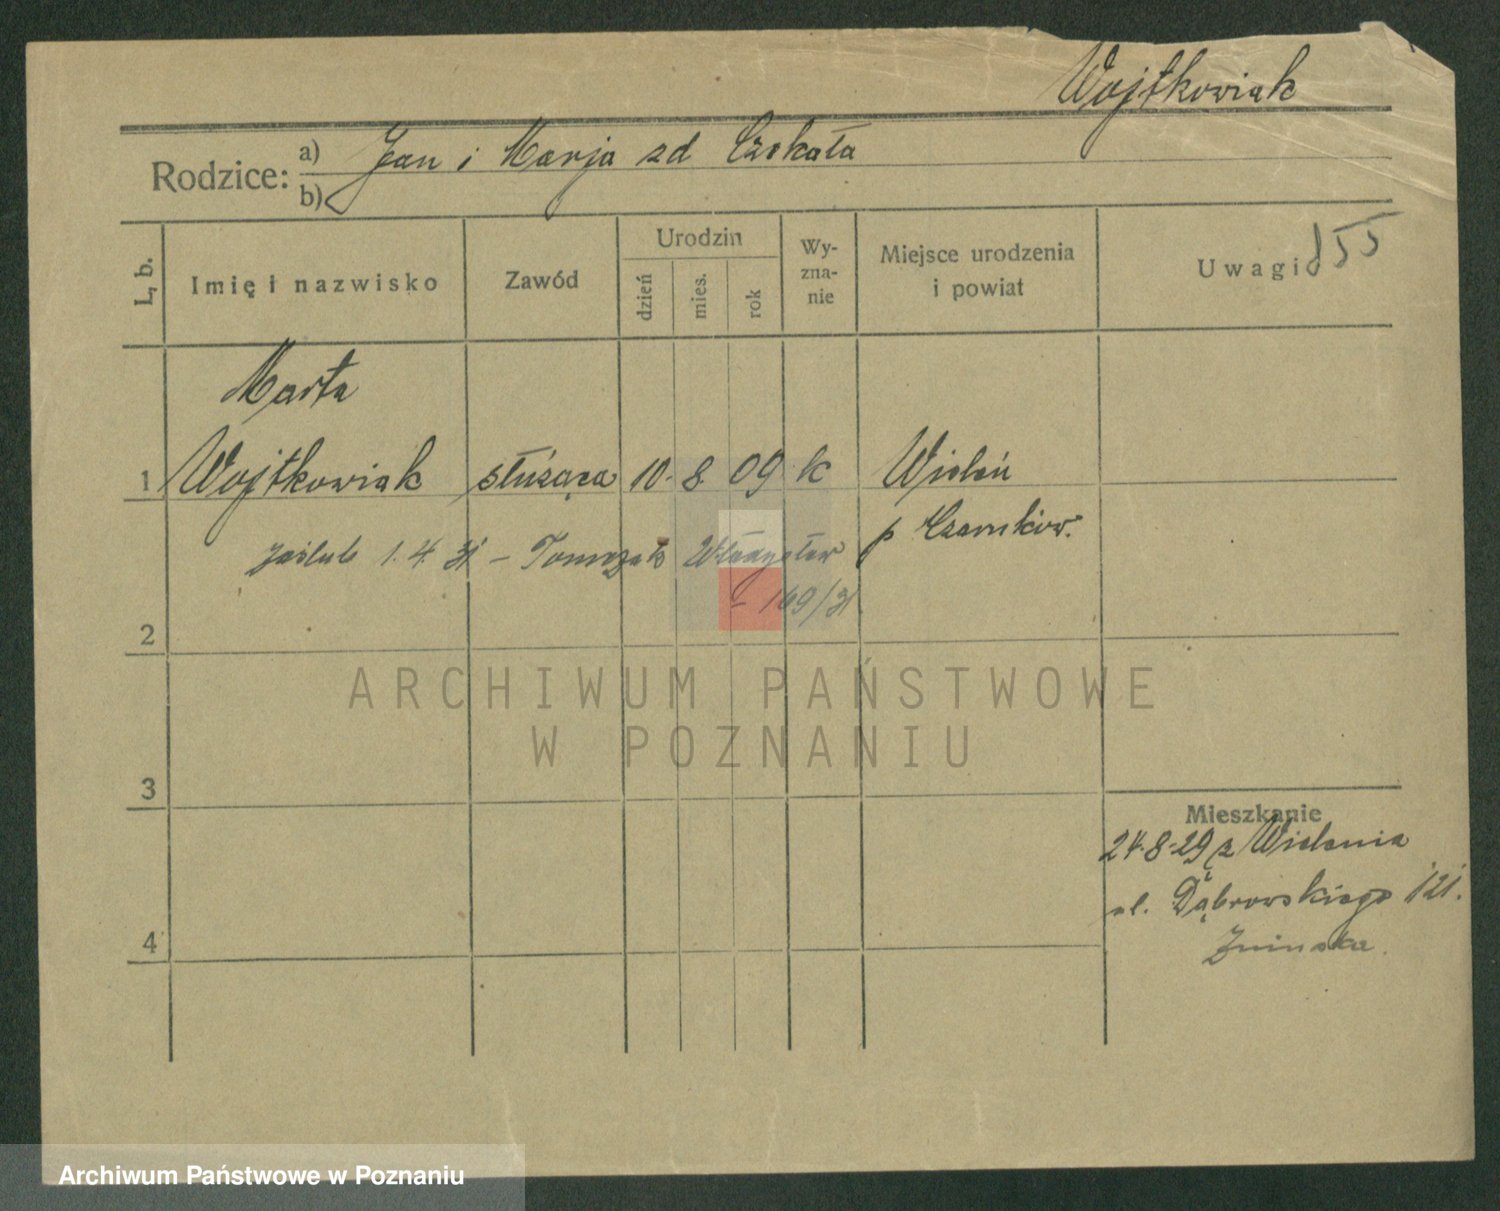 Wojtkowiak
Rodzice: a) Jan i Marja zd Czekała
b)
L. b. Imię i nazwisko Zawód Urodzin dzień mies. rok Wy-zna-nie Miejsce urodzenia i powiat Uwagi 855
Marta
1 Wojtkowiak służąca 10. 8. 09 k Wieleń
p Czarnków.
zaślub 1. 4. 31 – Tomczak Władysław
– 169/31
2
ARCHIWUM PAŃSTWOWE
W POZNANIU
3
Mieszkanie
24.8.29 z Wielenia
ul. Dąbrowskiego 121.
4
Archiwum Państwowe w Poznaniu